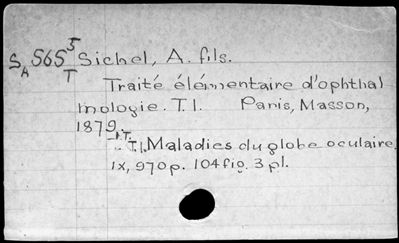 SA 565 5 T Sichel, A. fils.
Traité élémentaire d'ophthal
mologie. T.I. Paris, Masson,
1879.
T.I. Maladies du globe oculaire.
IX, 970p. 104 fig. 3 pl.